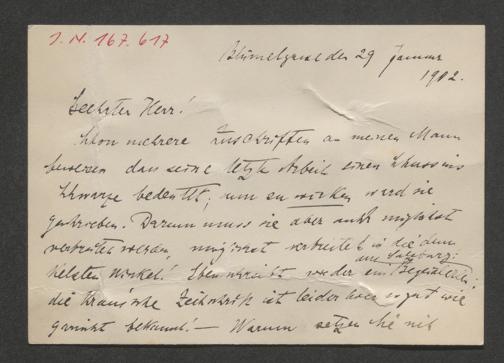 I.N. 167.617
Blümelgasse den 29 Januar
1902.
Geehrter Herr!
Schon mehrere Zuschriften an meinen Mann
beweisen dass seine letzte Arbeit einen Schuss ins
Schwarze bedeutet; um zu wirken ward sie
geschrieben. Darum muss sie aber auch möglichst
verbreitet werden, möglichst verbreitet in die dun
kelsten Winkel! Eben schreibt wieder ein Begeisterter
aus Salzburg:
die Kraus'sche Zeitschrift ist leider hier so gut wie
garnicht bekannt! — Warum setzen Sie nie